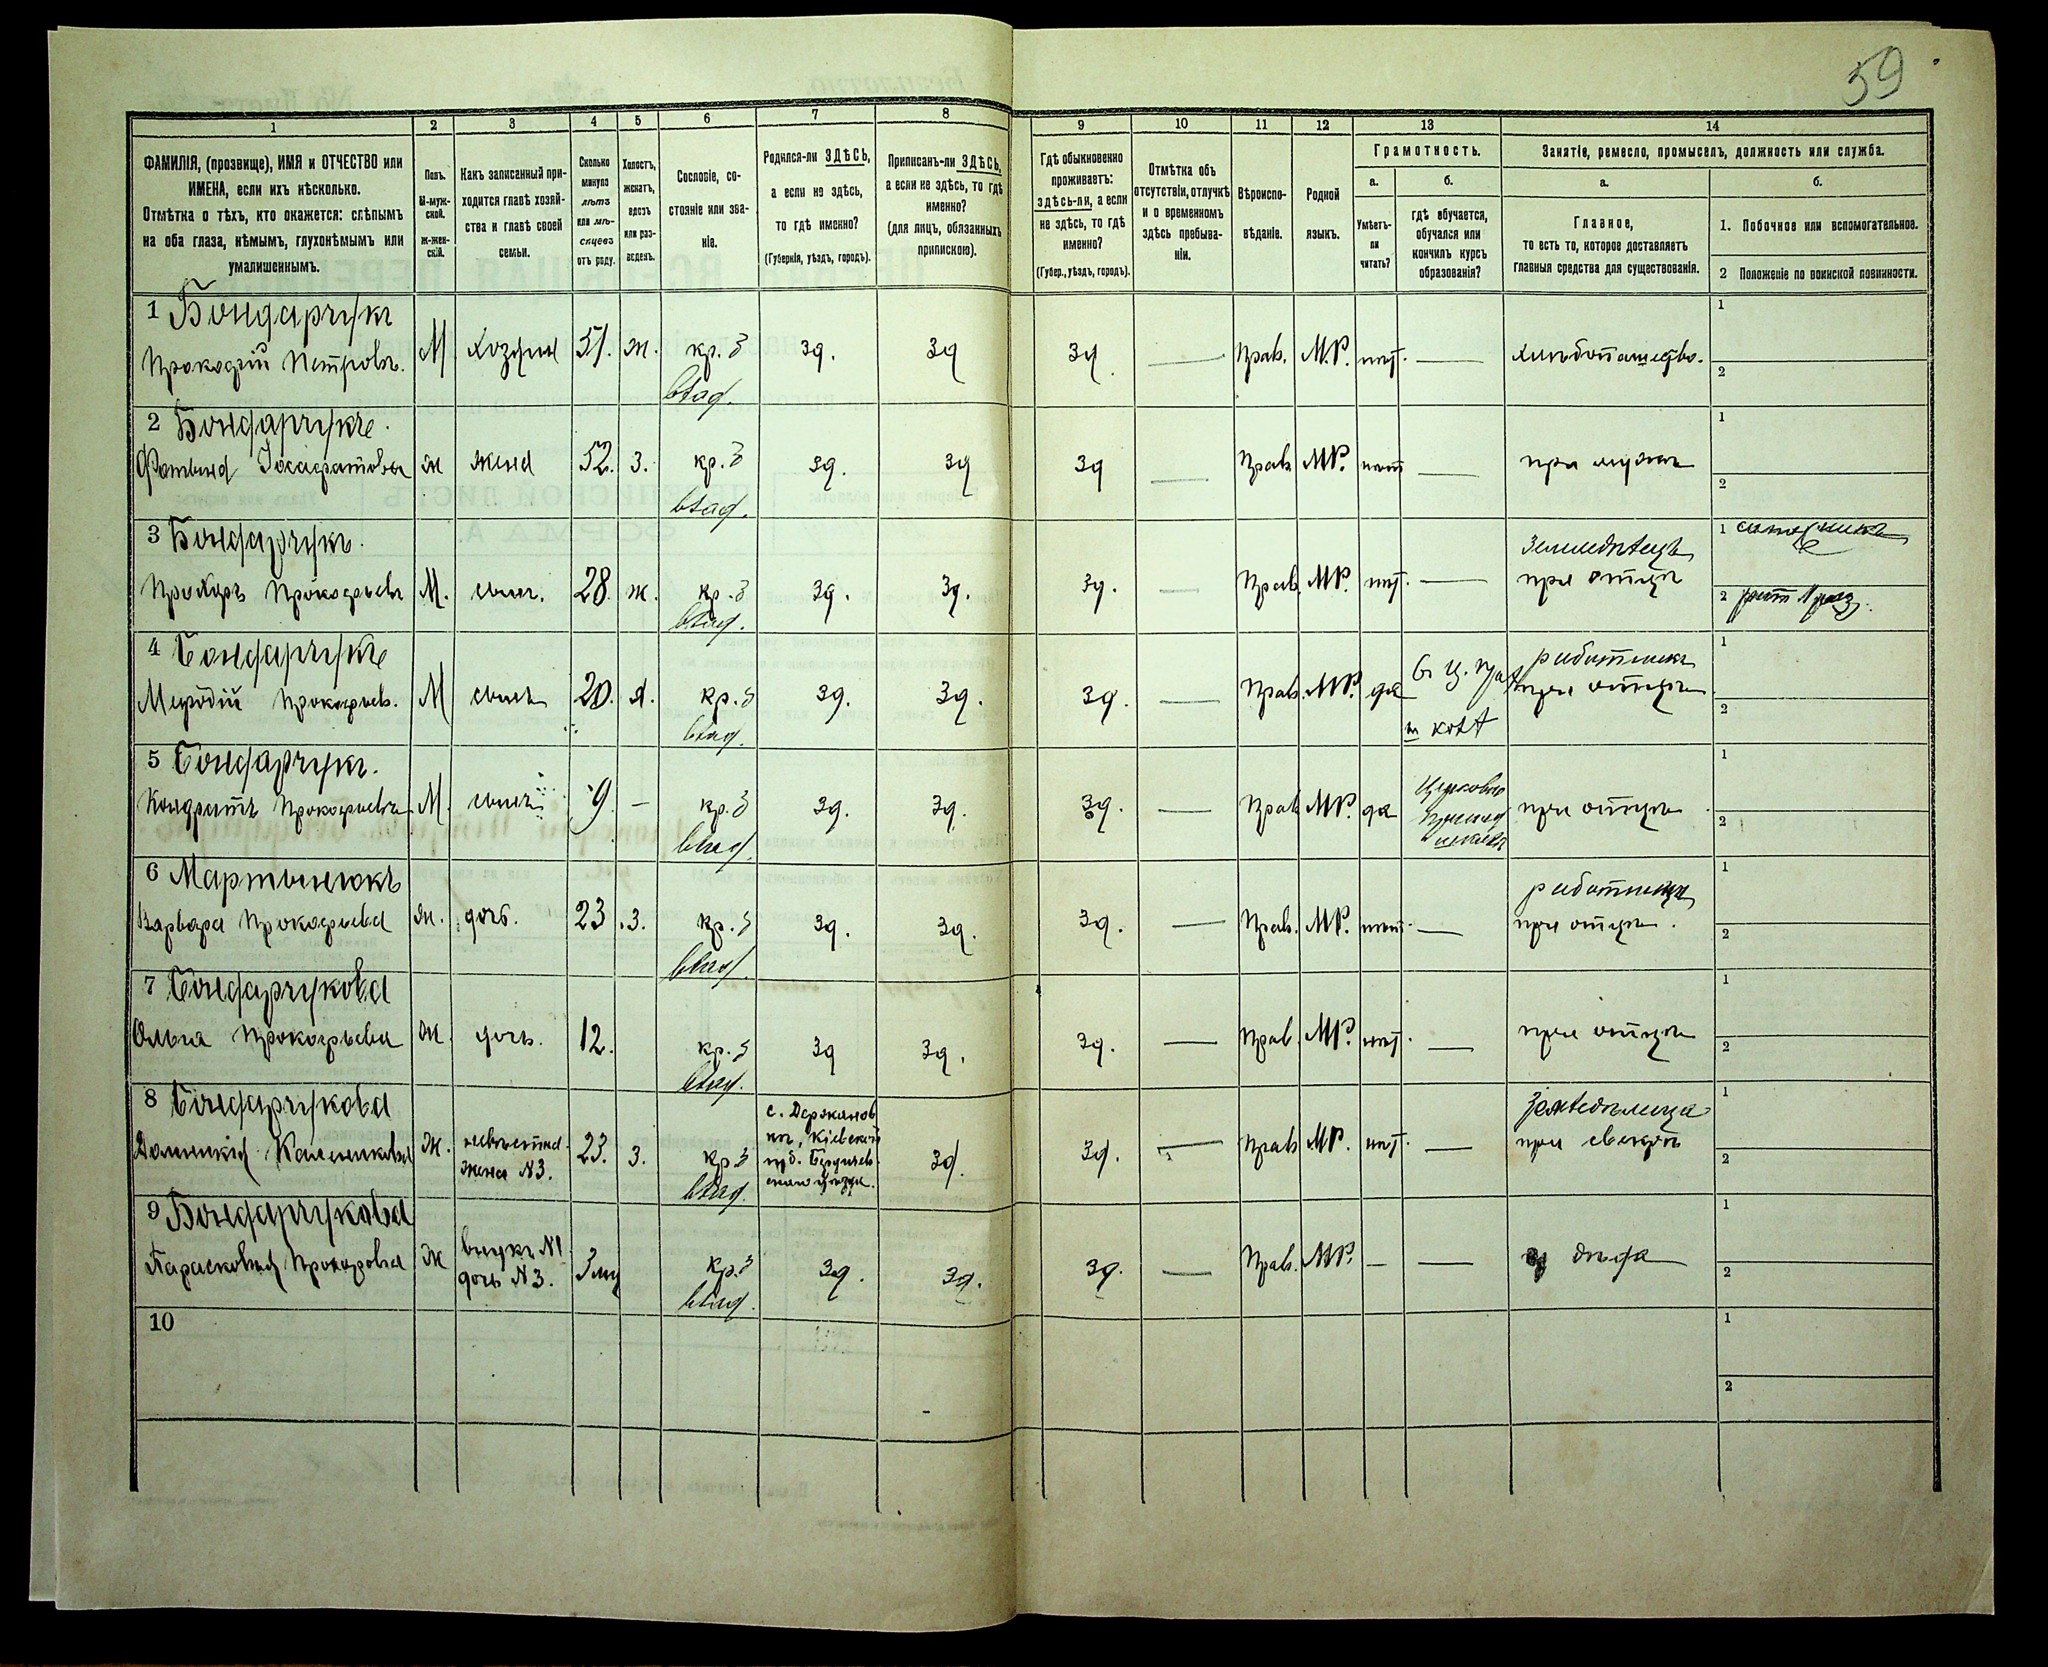 59
1 2 3 4 5 6 7 8 9 10 11 12 13 14
ФАМИЛІЯ, (прозвище), ИМЯ и ОТЧЕСТВО или
ИМЕНА, если ихъ нѣсколько.
Отмѣтка о тѣхъ, кто окажется: слѣпымъ
на оба глаза, нѣмымъ, глухонѣмымъ или
умалишеннымъ.
Полъ.
М-муж-
ской.
ж-жен-
скій.
Какъ записанный при-
ходится главѣ хозяй-
ства и главѣ своей
семьи.
Сколько
минуло
лѣтъ
или мѣ-
сяцевъ
отъ роду.
Холостъ,
женатъ,
вдовъ
или раз-
веденъ.
Сословіе, со-
стояніе или зва-
ніе.
Родился-ли ЗДѢСЬ,
а если не здѣсь,
то гдѣ именно?
(Губернія, уѣздъ, городъ).
Приписанъ-ли ЗДѢСЬ,
а если не здѣсь, то гдѣ
именно?
(для лицъ, обязанныхъ
припискою).
Гдѣ обыкновенно
проживаетъ:
здѣсь-ли, а если
не здѣсь, то гдѣ
именно?
(Губер., уѣздъ, городъ).
Отмѣтка объ
отсутствіи, отлучкѣ
и о временномъ
здѣсь пребыва-
ніи.
Вѣроиспо-
вѣданіе.
Родной
языкъ.
Грамотность.
а.
Умѣетъ-
ли
читать?
б.
гдѣ обучается,
обучался или
кончилъ курсъ
образованія?
Занятіе, ремесло, промыселъ, должность или служба.
а.
Главное,
то есть то, которое доставляетъ
главныя средства для существованія.
б.
1. Побочное или вспомогательное.
2 Положеніе по воинской повинности.
1 Бондарчукъ
Прокофій Петровъ. М хозяинъ 51. ж. кр. з зд. зд зд. — Прав. М.Р. нѣт. — хлѣбопашество. 1 2
влад.
2 Бондарчукъ.
Фотинія Іосафатовна ж жена 52. з. кр. з зд. зд зд — Прав. МР. нѣт — при мужѣ 1 2
влад.
3 Бондарчукъ.
Прохоръ Прокофьевъ М. сынъ. 28. ж. кр. з зд. зд. зд. — Прав. МР. нѣт. — земледѣлецъ
при отцѣ 1 2
влад.
4 Бондарчукъ
Меѳодій Прокофьев. М сынъ 20. х. кр. з зд. зд. зд. — Прав. МР. да работникъ
при отцѣ 1 2
влад.
5 Бондарчукъ.
Кондратъ Прокофьевъ М. сынъ 9 — кр. з зд. зд. зд. — Прав. МР. да при отцѣ 1 2
влад.
6 Мартынюкъ
Варвара Прокофьева ж. дочь. 23 з. кр. з зд. зд. зд. — Прав. МР. нѣт. — работница
при отцѣ. 1 2
влад.
7 Бондарчукова
Ольга Прокофьева ж. дочь. 12. кр. з зд зд. зд. — Прав. МР. нѣт. — при отцѣ 1 2
влад.
8 Бондарчукова
Доминикія ж. невѣстка
жена N3. 23. з. кр. з
влад.
с. Держанов
ка, Кіевской
губ. Бердичев-
скаго уѣзда.
зд. зд. — Прав. МР. нѣт. — земледѣлица
при свекрѣ 1 2
9 Бондарчукова
Парасковія Прохорова ж внука N1
дочь N3. 3 кр. з зд. зд. зд. — Прав. МР. — — 1 2
влад.
10 1 2